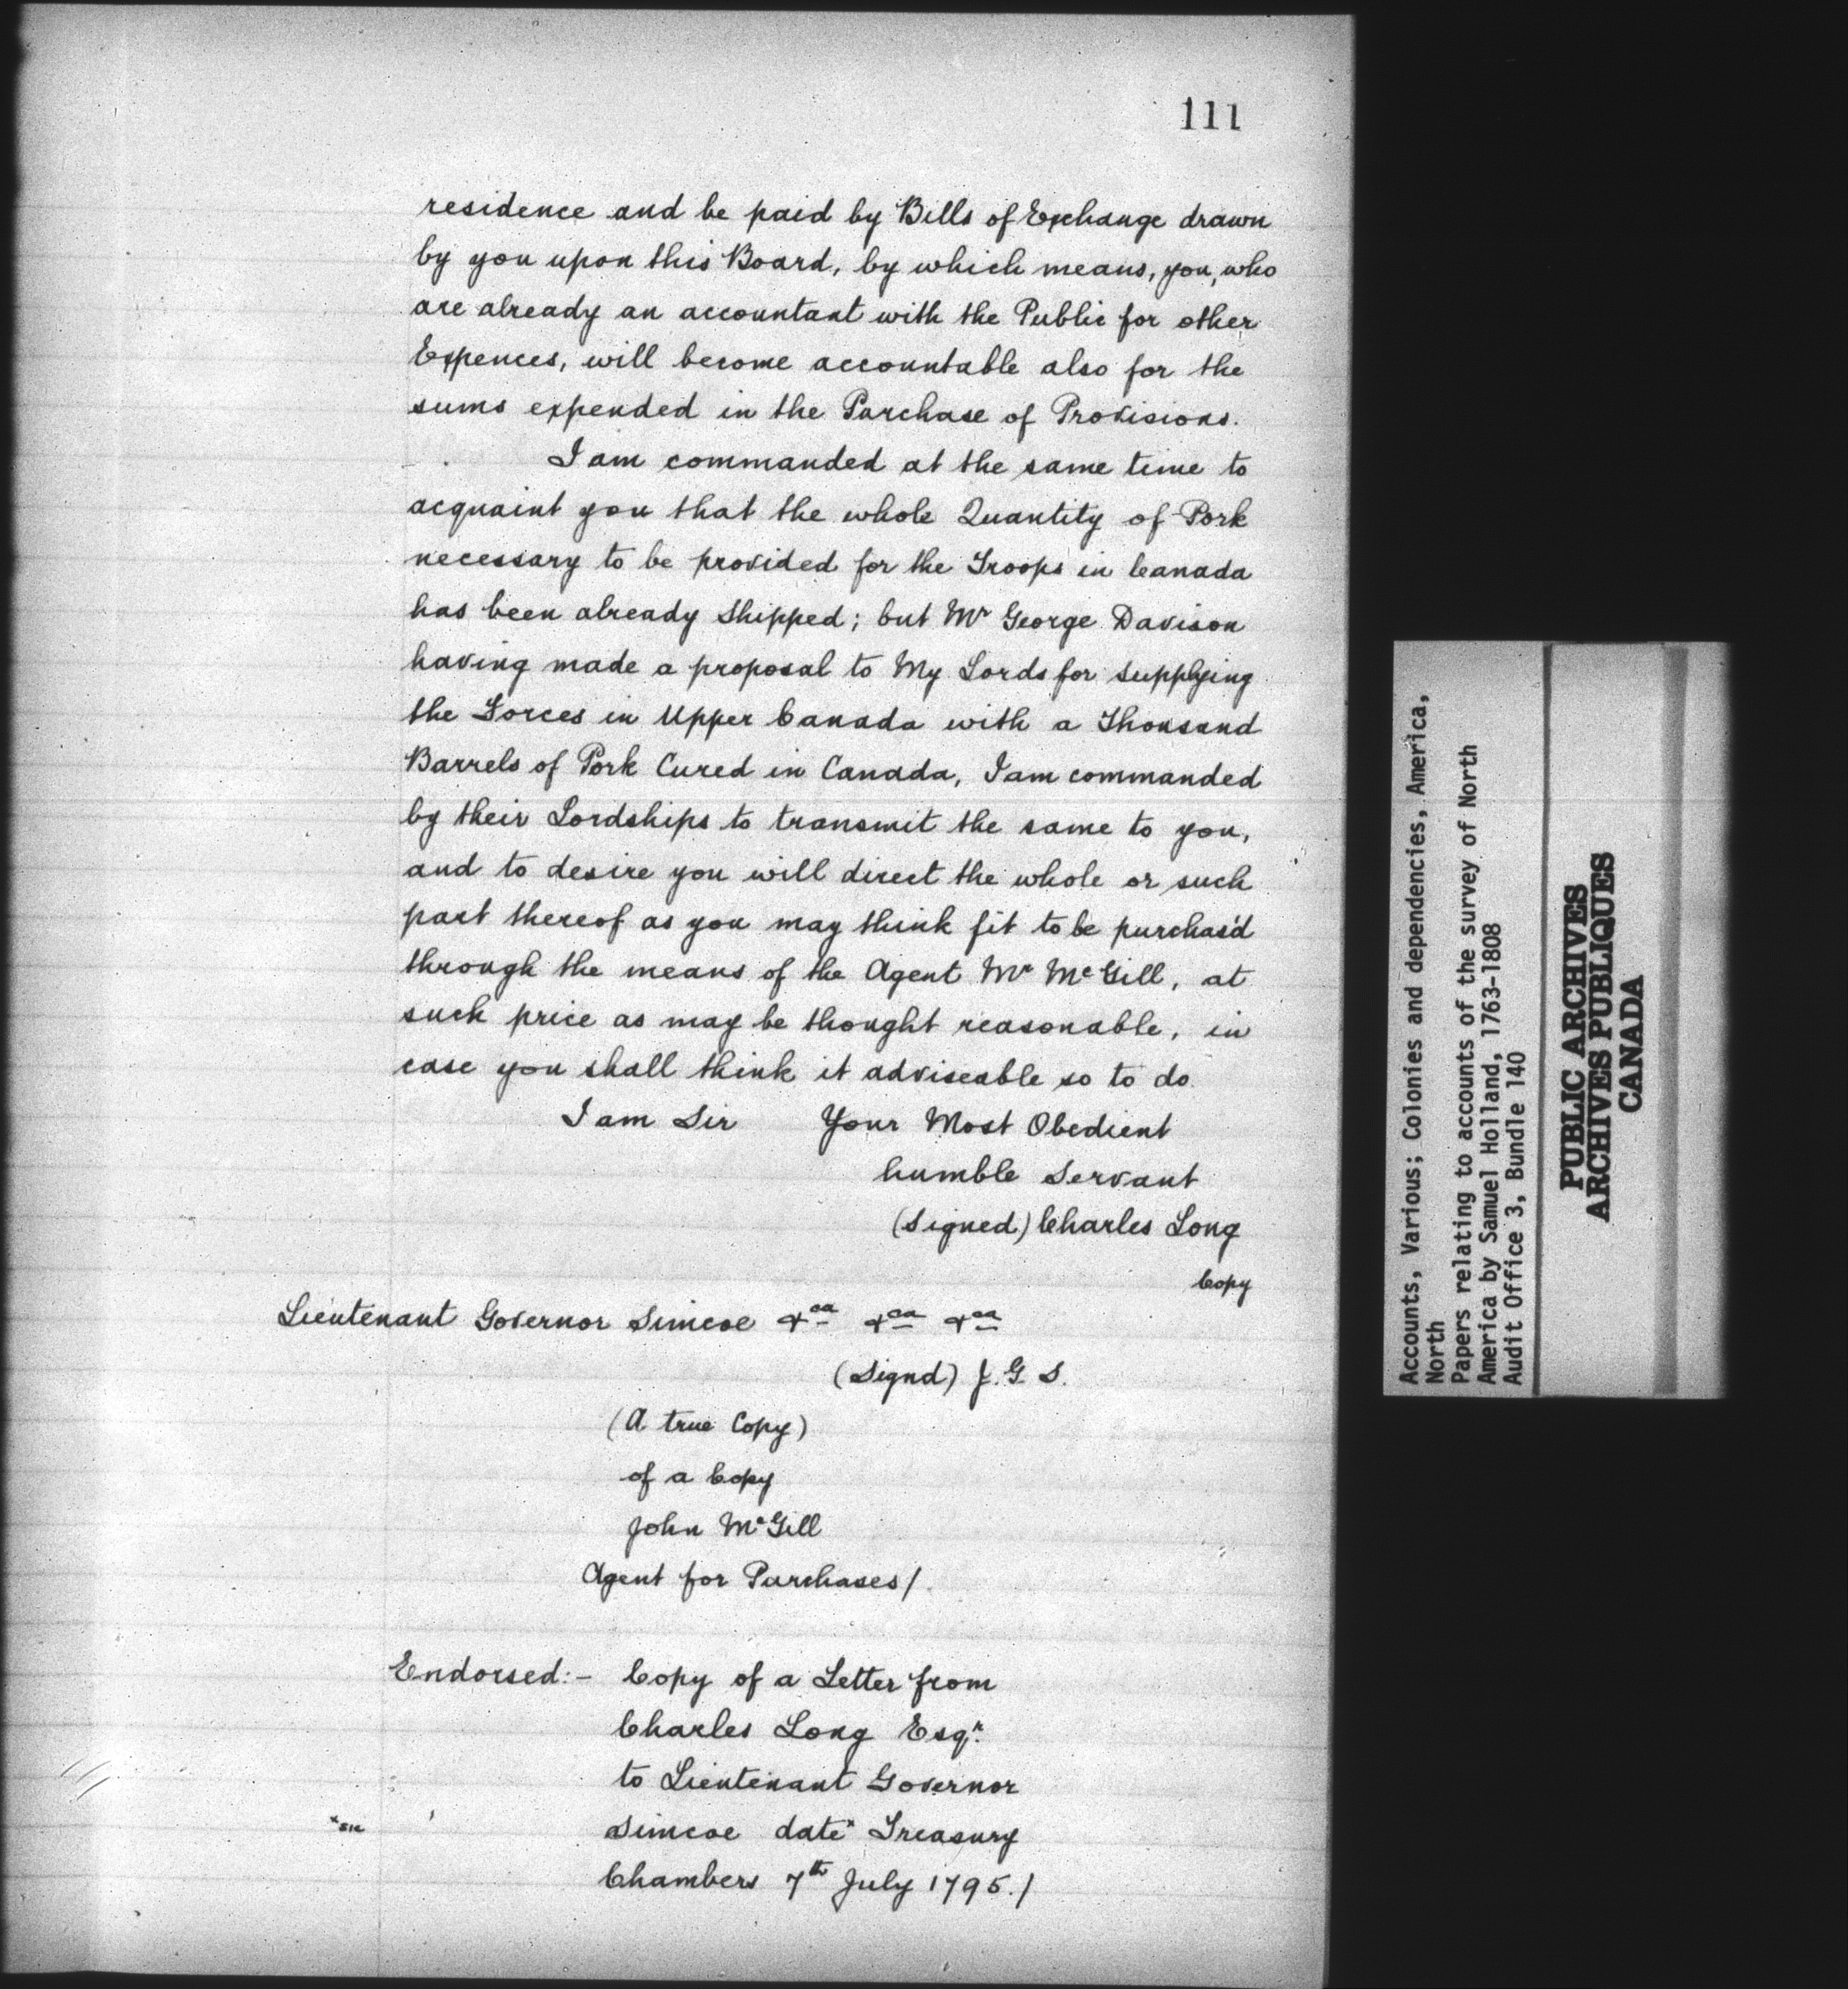 111
residence and be paid by Bills of Exchange drawn
by you upon this Board, by which means, you, who
are already an accountant with the Public for other
Expences, will become accountable also for the
sums expended in the Purchase of Provisions.
I am commanded at the same time to
acquaint you that the whole Quantity of Pork
necessary to be provided for the Troops in Canada
has been already Shipped; but Mr George Davison
having made a proposal to My Lords for supplying
the Forces in Upper Canada with a Thousand
Barrels of Pork Cured in Canada, I am commanded
by their Lordships to transmit the same to you,
and to desire you will direct the whole or such
part thereof as you may think fit to be purchas'd
through the means of the Agent Mr McGill, at
such price as may be thought reasonable, in
case you shall think it adviseable so to do.
I am Sir Your Most Obedient
humble Servant
(Signed) Charles Long
Copy
Lieutenant Governor Simcoe &ca &ca &ca
(Signd) J. G. S.
(A true Copy)
of a Copy
John McGill
Agent for Purchases/.
Endorsed:- Copy of a Letter from
Charles Long Esqr.
to Lieutenant Governor
Simcoe datex Treasury
x sic
Chambers 7th July 1795./
Accounts, Various; Colonies and dependencies, America,
North
Papers relating to accounts of the survey of North
America by Samuel Holland, 1763-1808
Audit Office 3, Bundle 140
PUBLIC ARCHIVES
ARCHIVES PUBLIQUES
CANADA